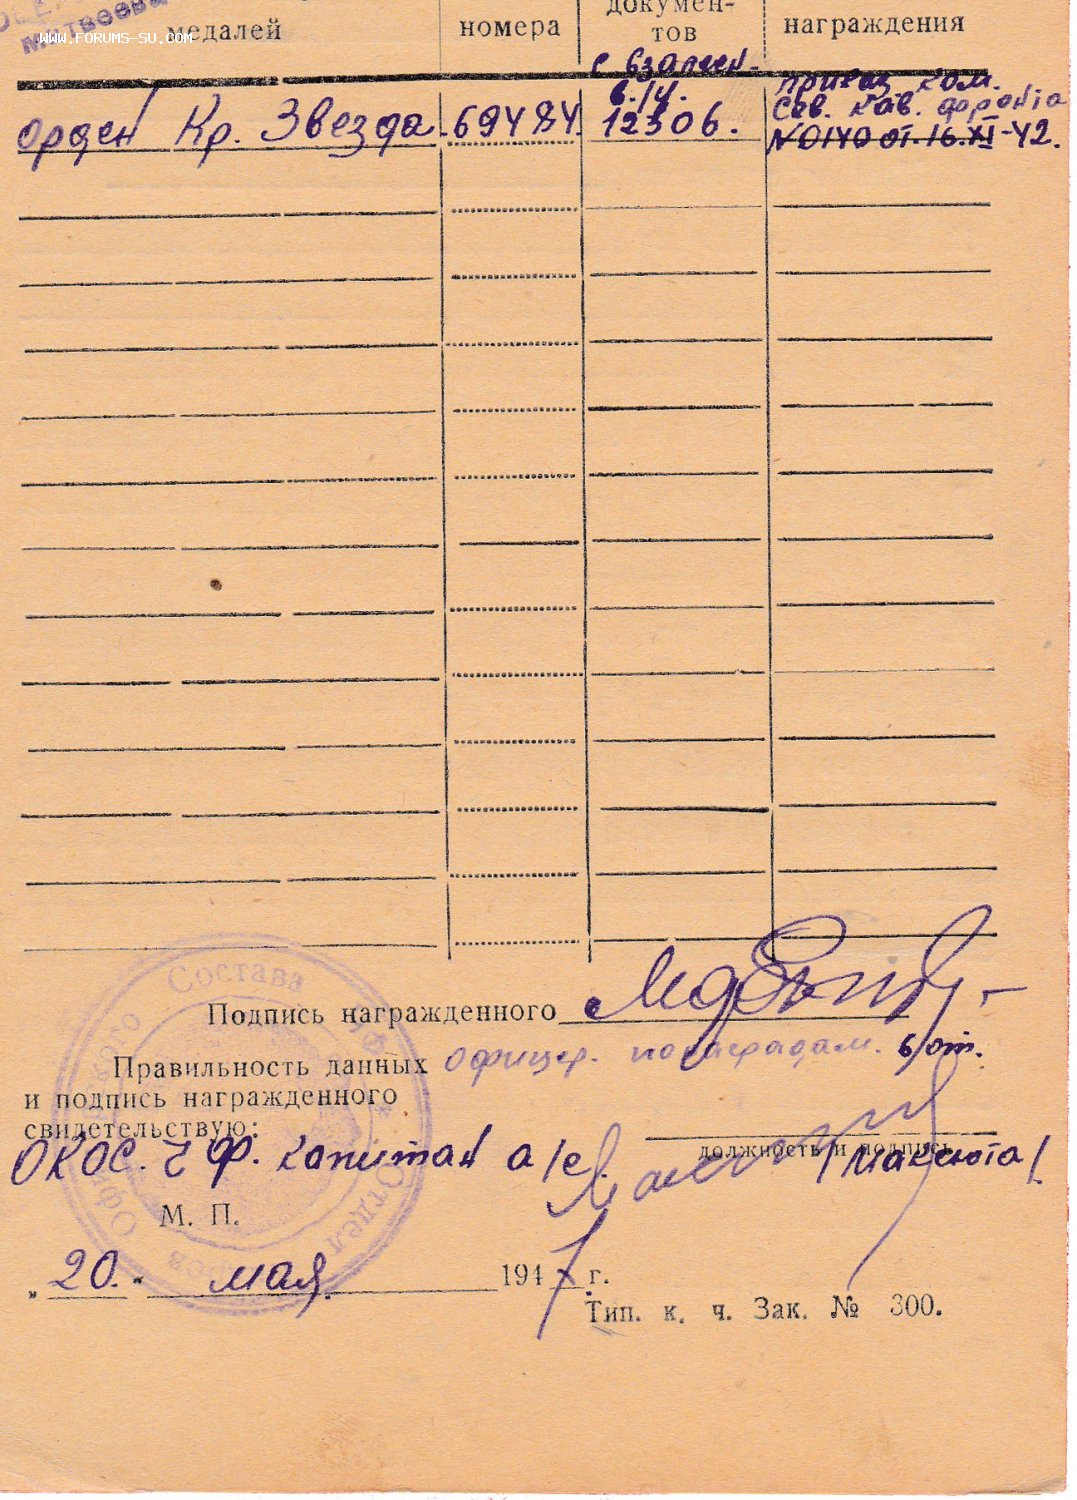 Матвеева
WWW.FORUMS-SU.COM
медалей
номера
докумен-
тов
награждения
с взамен
в./ч.
Орден Кр. Звезда 69484 12306.
приказ ком.
Сев. Кав. фронта
№0140 от. 16.XI-42.
Состава
Отдел
Подпись награжденного
Правильность данных
офицер. по наградам. 6/от.
и подпись награжденного
свидетельствую:
должность и подпись
ОКОС. ЧФ. капитан а/с. /Максюта/.
М. П.
„20.“ мая 1947 г.
Тип. к. ч. Зак. № 300.